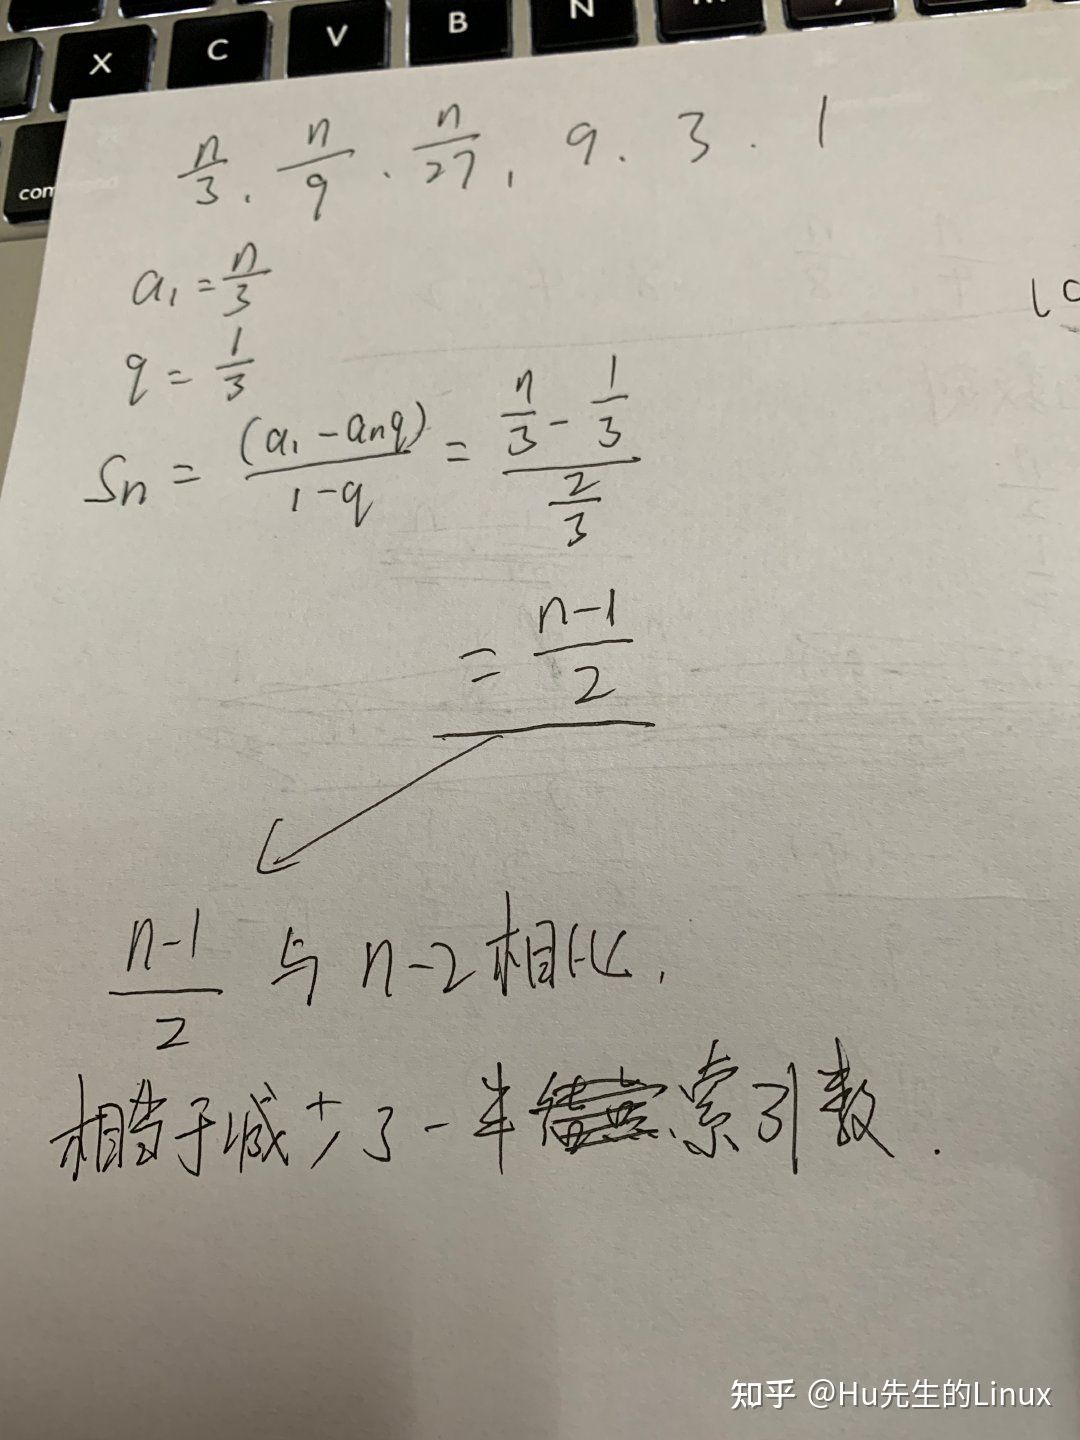 X C V B N M
com
n/3 . n/9 . n/27 , 9 . 3 . 1
a₁ = n/3
q = 1/3
Sn = (a₁ - anq) / 1-q = (n/3 - 1/3) / (2/3)
= n-1 / 2
n-1 / 2 与 n-2 相比,
相当于减少了一半 索引数.
知乎 @Hu先生的Linux